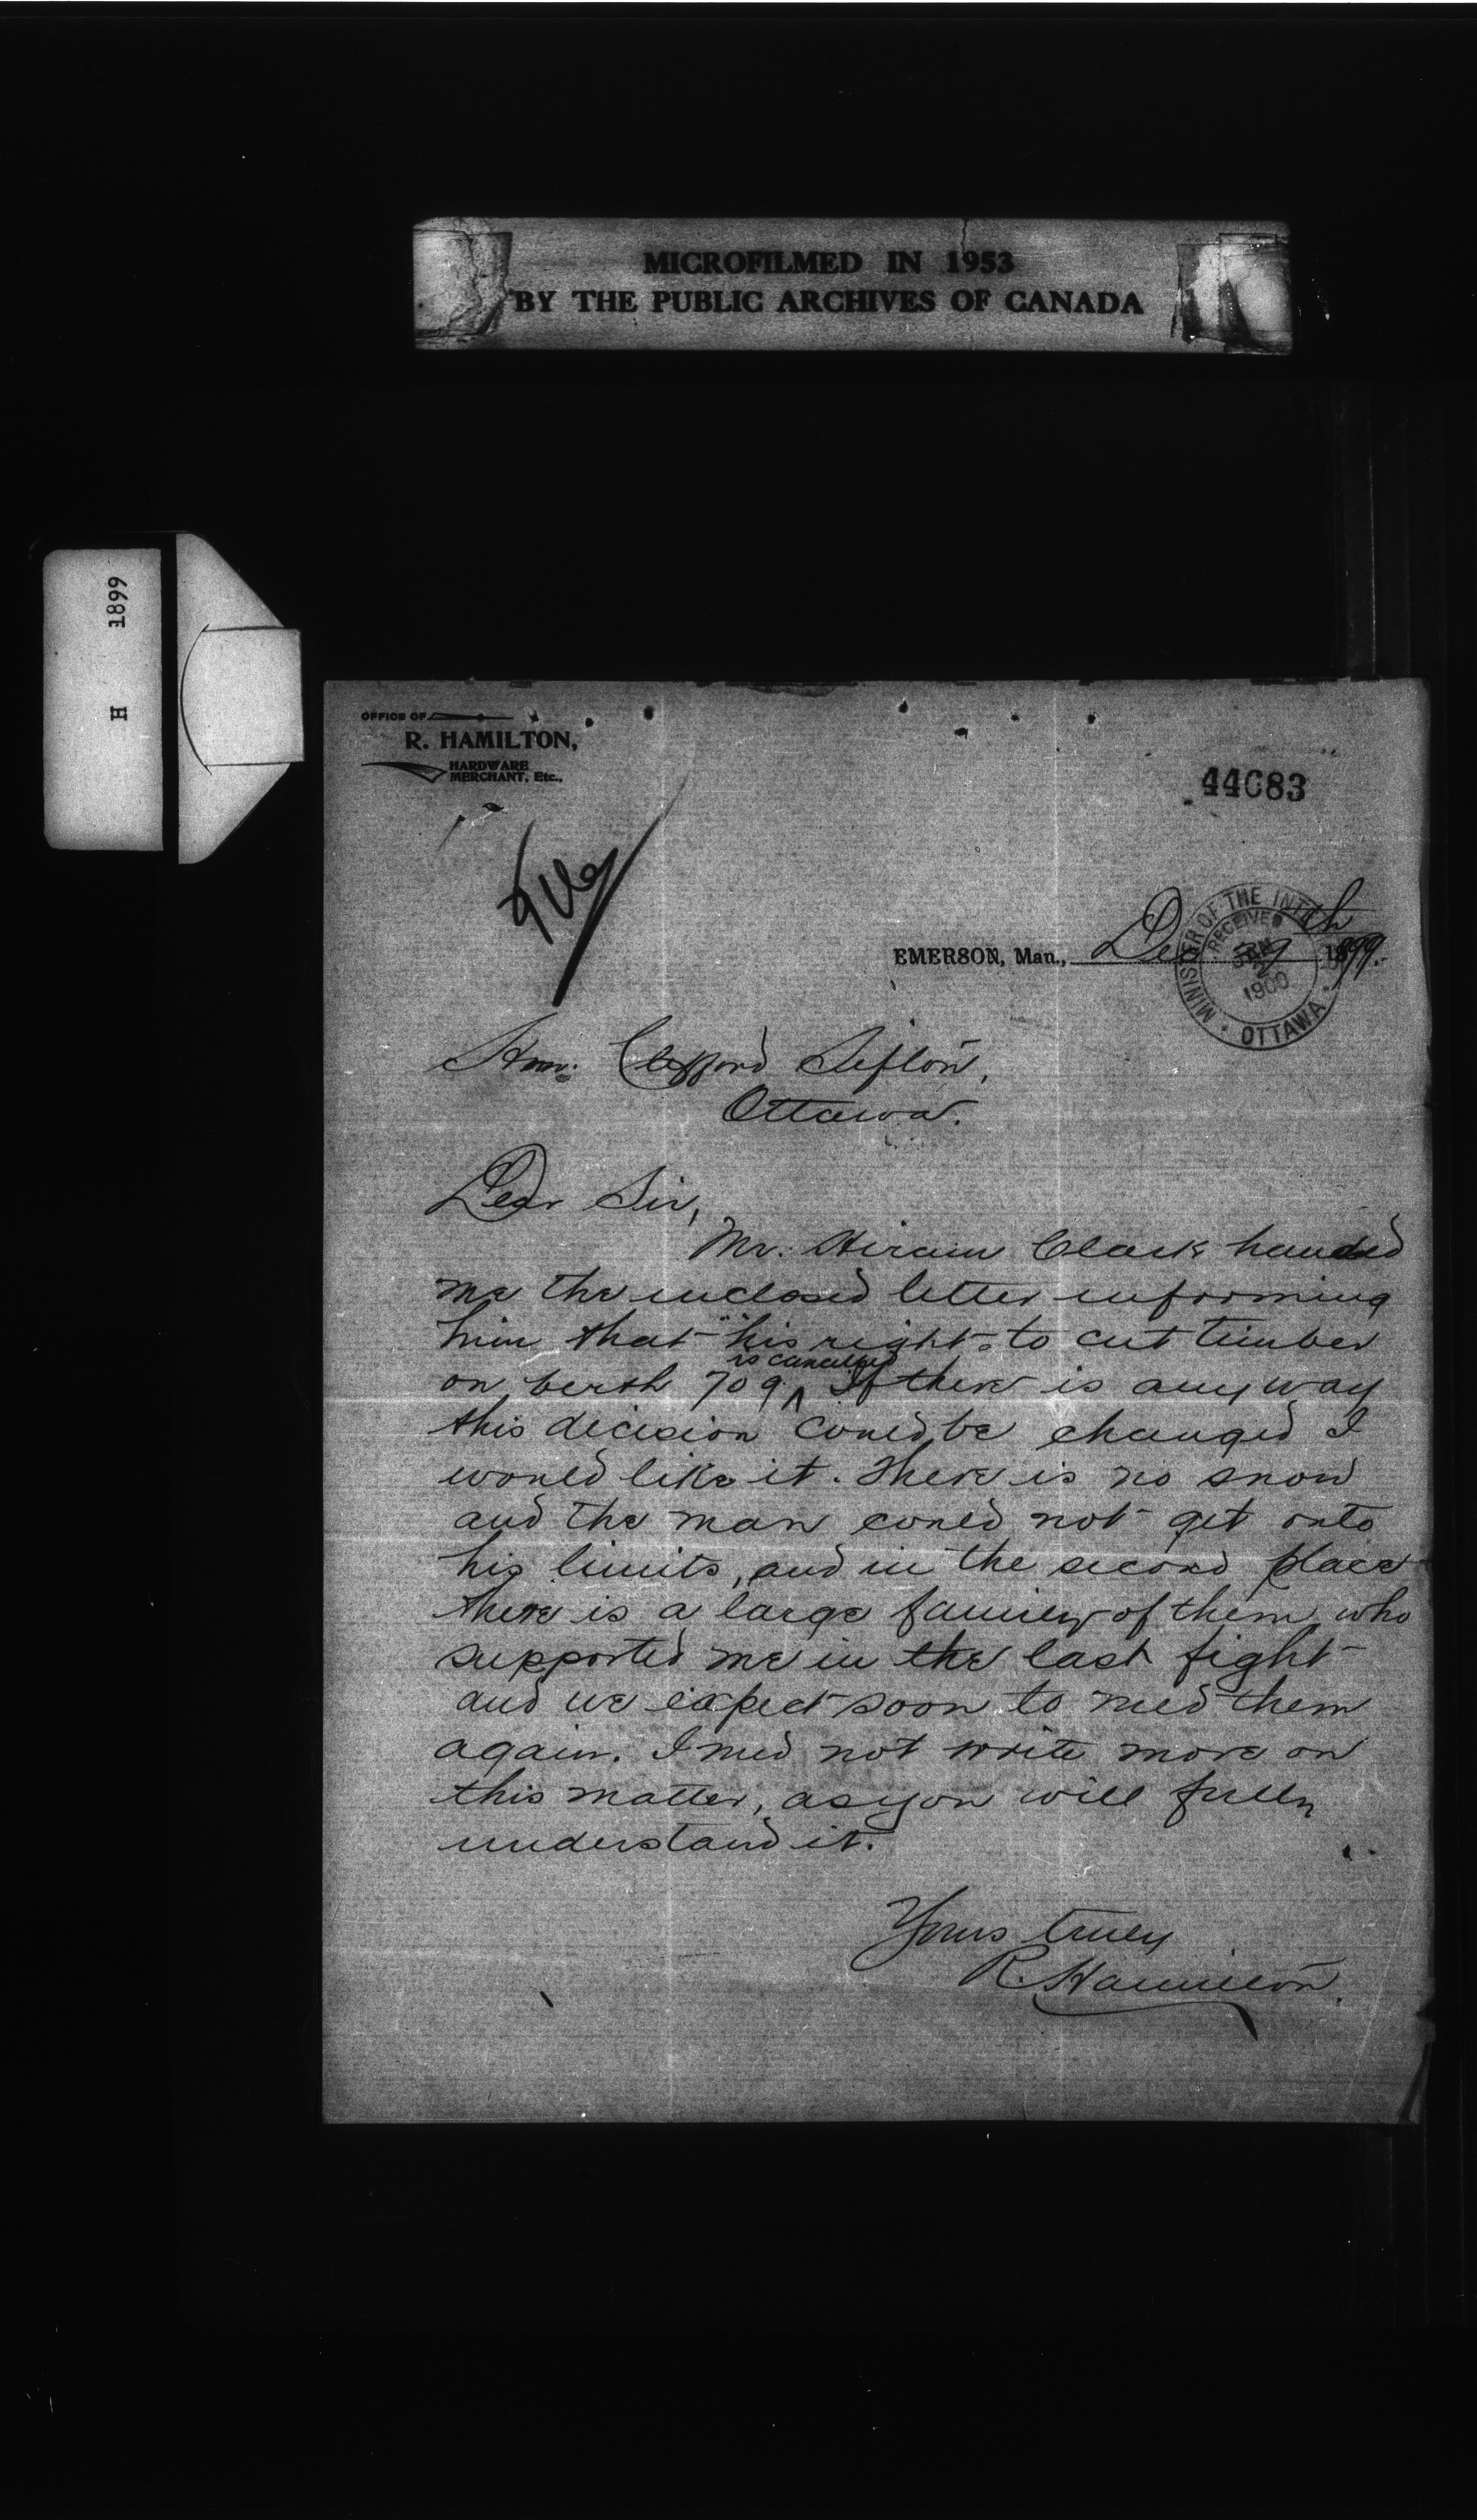 MICROFILMED IN 1953
BY THE PUBLIC ARCHIVES OF CANADA
H 1899
OFFICE OF
R. HAMILTON,
HARDWARE
MERCHANT, Etc.,
44083
File
MINISTER OF THE INTERIOR
RECEIVED
JAN 2
1900
OTTAWA
EMERSON, Man., Dec 29th 1899.
Hon. Clifford Sifton,
Ottawa.
Dear Sir,
Mr. Hiram Clark handed
me the enclosed letter informing
him that his right to cut timber
is cancelled
on berth 709 ^ If there is any way
this decision could be changed I
would like it. There is no snow
and the man could not get onto
his limits, and in the second place
there is a large family of them who
supported me in the last fight
and we expect soon to need them
again. I need not write more on
this matter, as you will fully
understand it.
Yours truly
R. Hamilton.